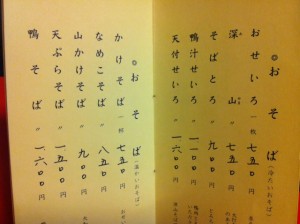 ◎おそば（冷たいおそば）
おせいろ 一枚 七五〇円
深山 〃 七五〇円
そばとろ 〃 九〇〇円
鴨汁せいろ 〃 一一〇〇円
天付せいろ 〃 一六〇〇円
◎おそば（温かいおそば）
かけそば 一杯 七五〇円
なめこそば 〃 八五〇円
山かけそば 〃 九〇〇円
天ぷらそば 〃 一五〇〇円
鴨そば 〃 一六〇〇円